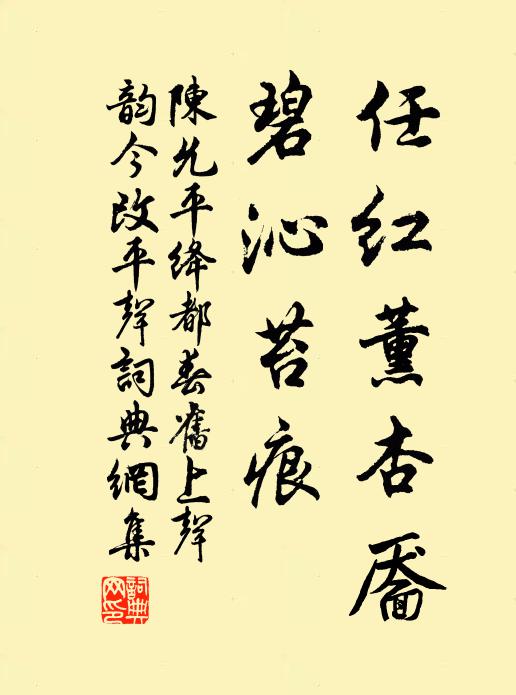 任红薰杏靥
碧沁苔痕
陳允平绛都春舊上聲
韵今改平聲詞典網集
詞典网印